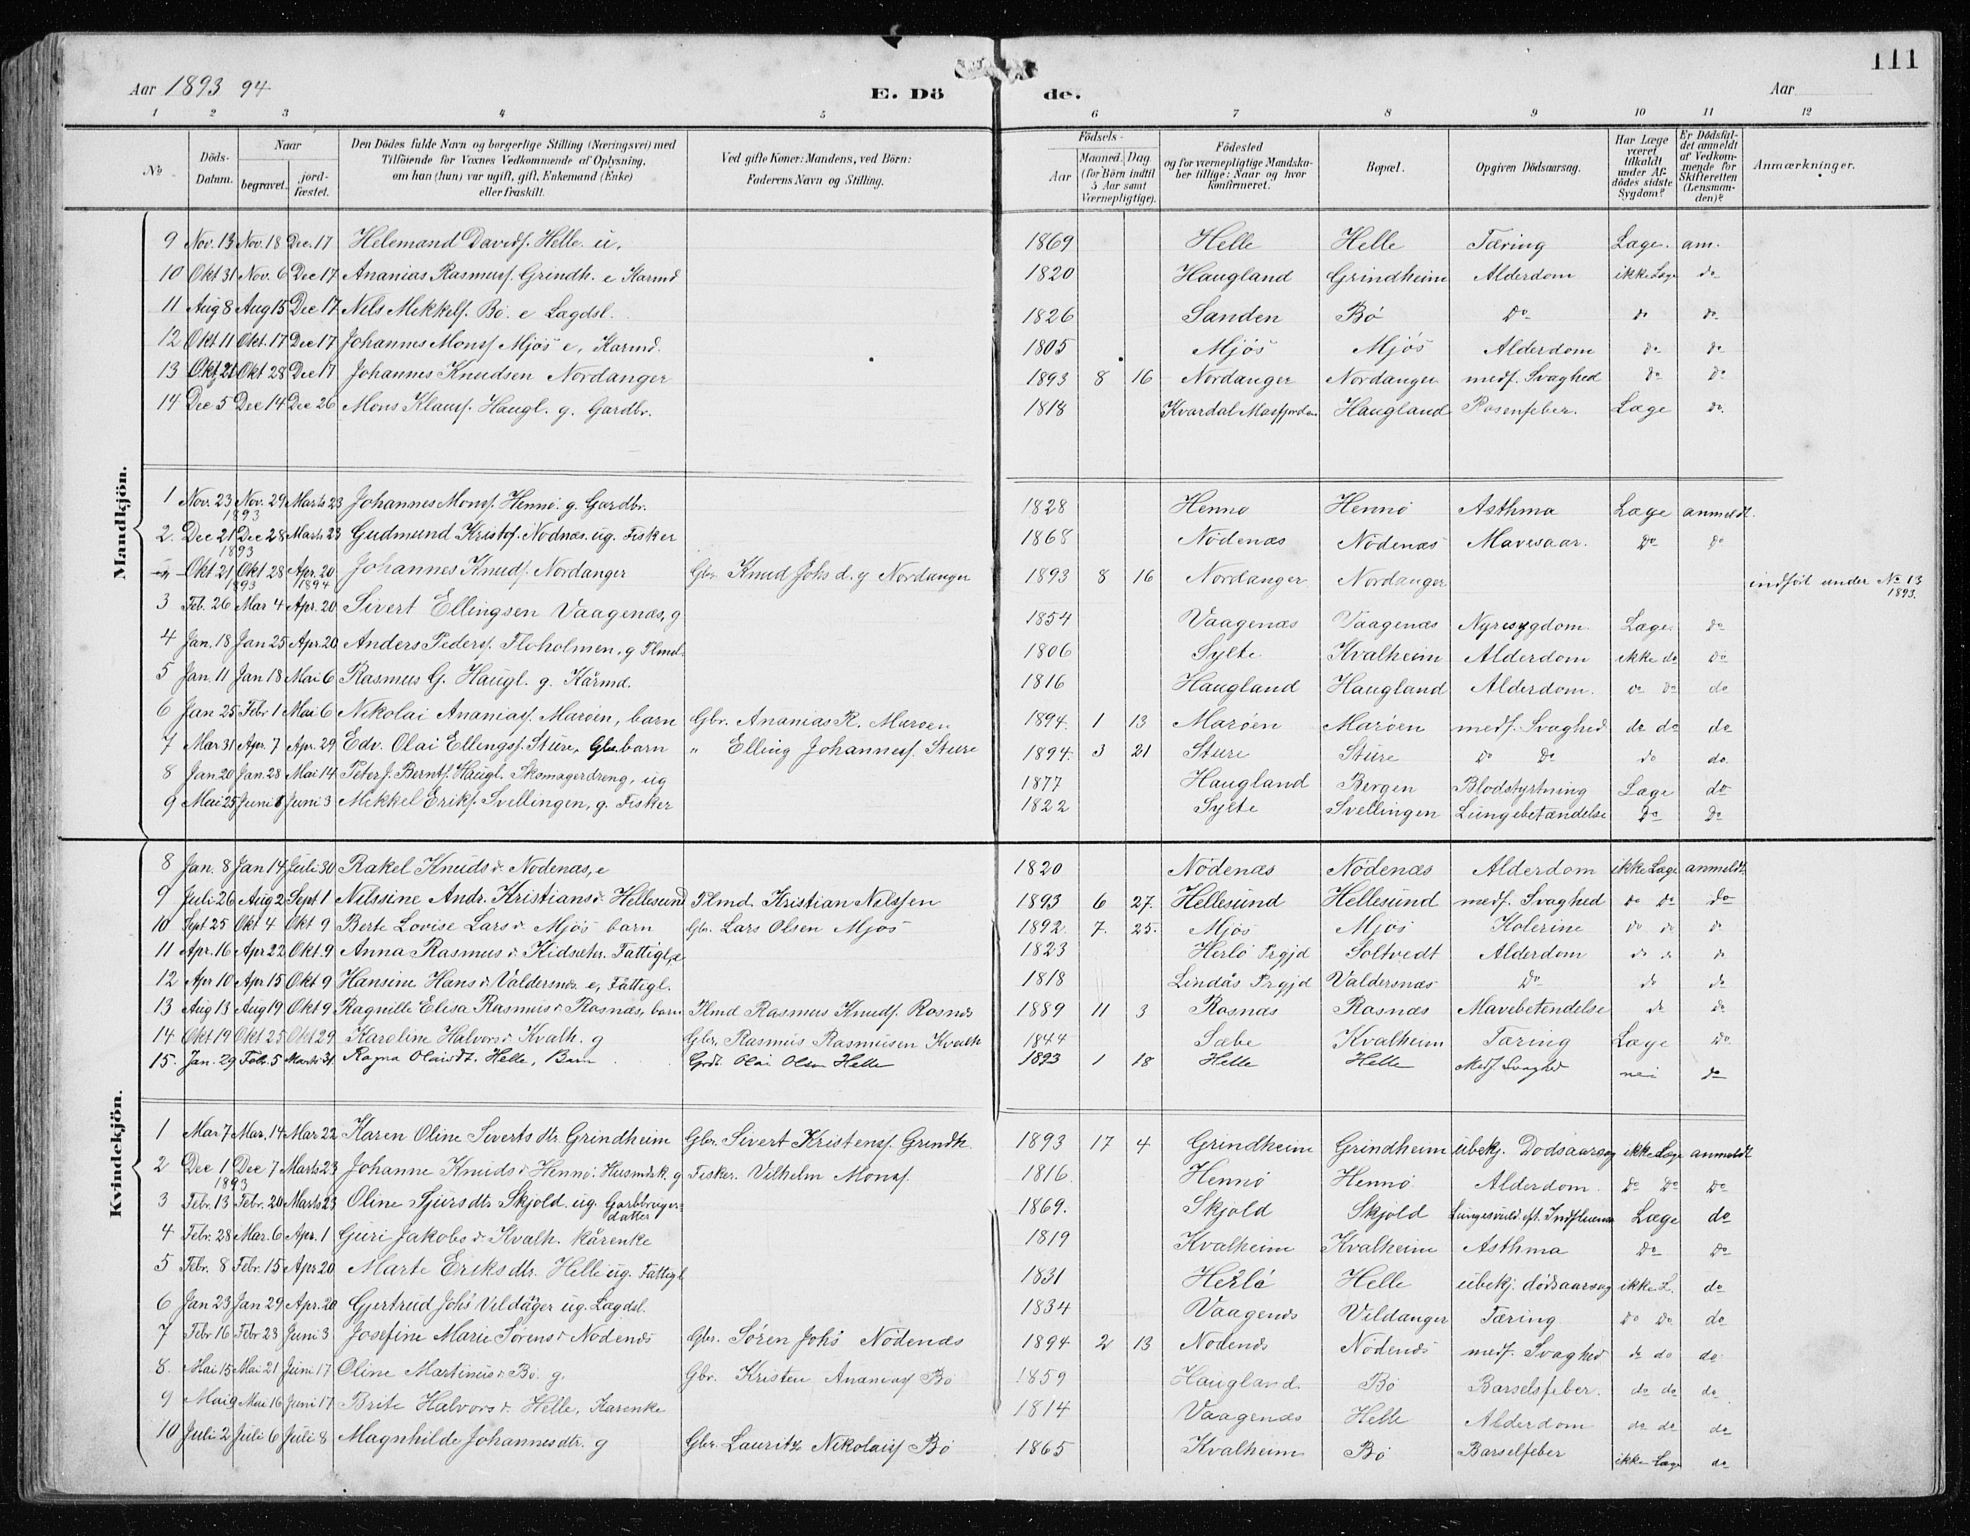 111
Aar 1893 94 E. Dö de. Aar
1 2 3 4 5 6 7 8 9 10 11 12
No Döds-Datum. Naar begravet. jord-fæstet. Den Dödes fulde Navn og borgerlige Stilling (Næringsvei) med Tilföiende for Voxnes Vedkommende af Oplysning, om han (hun) var ugift, gift, Enkemand (Enke) eller fraskilt. Ved gifte Koner: Mandens, ved Börn: Faderens Navn og Stilling. Födsels- Aar Maaned. Dag. (for Börn indtil 5 Aar samt Værnepligtige). Födested og for værnepligtige Mandskaber tillige: Naar og hvor konfirmeret. Bopæl. Opgiven Dödsaarsag. Har Læge været tilkaldt under Afdödes sidste Sygdom? Er Dödsfaldet anmeldt af Vedkommende for Skifteretten (Lensmanden)? Anmærkninger.
Mandkjön.
9 Nov. 13 Nov. 18 Dec. 17 Helemand Davids. Helle u. 1869 Helle Helle Tæring Læge. am.
10 Okt 31 Nov. 6 Dec 17 Ananias Rasmuss. Grindh. e Karmd 1820 Haugland Grindheim Alderdom ikke Læge do
11 Aug 8 Aug 15 Dec 17 Nils Mikkels. Bö. e Lægdsl. 1826 Sanden Bö Do do do
12 Okt 11 Okt. 17 Dec 17 Johannes Monss Mjös e, Karmd. 1805 Mjös Mjös Alderdom do do
13 Okt 21 Okt 28 Dec 17 Johannes Knudsen Nordanger 1893 8 16 Nordanger Nordanger medf. Svaghed do do
14 Dec 5 Dec 14 Dec 26 Mons Klaus. Haugl. g. Gardbr. 1818 Kvardal Masfjorden Haugland Rosenfeber. Læge do
1 Nov. 23 Nov. 29 Marts 23 Johannes Mons. Hennö. g. Gardbr. 1828 Henno Hennö Asthma Læge anmeldt.
1893
2. Dec 21 Dec 28 Marts 23 Gudmund Kristof. Nodnæs. ug. Fisker 1868 Nödenæs Nödenæs Mavesaar. Do do
1893
" Okt 21 Okt 28 Apr. 20 Johannes Knuds. Nordanger Gbr. Knud Johs d. y Nordanger 1893 8 16 Nordanger Nordanger indfört under No 13 1893.
1893 1894
3 Feb. 26 Mar 4 Apr. 20 Sivert Ellingsen Vaagenæs, g 1854 Vaagenæs Vaagenæs Nyresygdom. Læge. do
4 Jan. 18 Jan 25 Apr. 20 Anders Peders. Floholmen, g 1806 Sylte Kvalheim Alderdom ikke do Do
5 Jan. 11 Jan 18 Mai 6 Rasmus G. Haugl. g. Kårmd. 1816 Haugland Haugland Alderdom. do do do
6 Jan 25 Febr 1 Mai 6 Nikolai Ananiass. Maröen, barn Gbr. Ananias R. Maröen 1894. 1 13 Maröen Maröen medf. Svaghed do do do
7 Mar 31 Apr. 7 Apr. 29 Edv. Olai Ellings. Sture. Gbr. barn " Elling Johanness. Sture 1894. 3 21 Sture Sture Do Do do do
8 Jan. 20 Jan. 28 Mai 14 Peter J. Bernts. Haugl. Skomagerdreng, ug 1877 Haugland Bergen Blodstyrtning Læge do
9 Mai 25 Juni 1 Juni 3 Mikkel Eriks. Svellingen, g. Fisker 1822 Sylte Svellingen Lungebetændelse Do Do
Kvindekjön.
8 Jan. 8 Jan 14 Juli 30 Rakel Knudsdr Nodenæs, e 1820 Nödenæs Nödenæs Alderdom ikke Læge anmeldt
9 Juli 26 Aug 2 Sept 1 Nilsine Andr. Kristiansdr. Hellesund Flmd. Kristian Nelssen 1893 6 27. Hellesund Hellesund medf. Svaghed do do do
10 Sept 25 Okt 4 Okt 9 Berte Lovise Larsdr. Mjös barn Gbr. Lars Olsen Mjös 1892. 7. 25. Mjös Mjös Kolerine do do do
11 Apr. 16 Apr 22 Okt. 9 Anna Rasmusdr Kidsætr. Fattigl, e 1823 Herlö Prgjd Soltvedt Alderdom do do do
12 Apr 10 Apr 15 Okt 9 Hansine Hansdr Valdersnes e, Fattigl. 1818 Lindås Prgjd Valdersnæs Do do do
13 Aug 13 Aug 19 Okt 9 Ragnille Elisa Rasmusdr Rosnæs, barn Flmd Rasmus Knuds. Rosnæs 1889 11 3 Rosnæs Rosnæs Mavebetendelse do do
14 Okt 19 Okt 25 Okt 29 Karoline Halvorsdr. Kvalh. g Gbr. Rasmus Rasmusen Kvalh 1844 Sæbe Kvalheim Tæring Læge Do.
15. Jan. 29 Febr. 5 Marts 31 Ragna Olaidt. Helle, Barn Grdr. Olai Olsen Helle 1893 1 18 Helle Helle Medf. Svaghed nei do
1 Mar 7 Mar. 14 Mar 22 Karen Oline Siverts dtr. Grindheim Gbr. Sivert Kristens. Grindh. 1893 17 4 Grindheim Grindheim ubekj. Dodsaarsag ikke Læge anmeldt
2 Dec 1 Dec 7 Marts 23 Johanne Knudsdr Hennö. Husmdsk. g Fisker. Vilhelm Monss. 1816 Hennö Hennö Alderdom. Do Do Do
1893
3 Febr. 13 Febr. 20 Marts 23 Oline Sjursdtr Skjold. ug. Gardbruger-datter 1869. Skjold Skjold Lungesvuld. eft. Indfluensa Læge do
4 Febr. 28 Mar. 6 Apr. 1 Guri Jakobsdr. Kvalh. Kårenke 1819 Kvalheim Kvalheim Asthma Do Do
5 Febr. 8 Febr. 15 Apr 20 Marte Eriksdtr. Helle ug. Fattigl 1831 Herlö Helle ubekj. dödsaarsag ikke L. do
6 Jan 23 Jan 29 Apr. 20 Gjertrud Johs Vildåger ug. Lægdsl. 1834 Vaagenæs Vildanger Tæring Do Do do
7 Febr 16 Febr 23 Juni 3 Josefine Marie Sörensdr Nödenæs Gbr. Sören Johs Nödenæs 1894 2 13 Nodenæs Nödenæs medf. Svaghed do do do
8. Mai 15 Mai 21 Juni 17 Oline Martinusdr. Bö. g. Gbr. Kristen Ananias Bö 1859 Haugland Bö Barselsfeber. do do do
9 Mai 9 Mai 16 Juni 17 Brite Halvorsdr. Helle, Karenke 1814 Vaagenæs Helle Alderdom do do do
10 Juli 2 Juli 6 Juli 8 Magnhilde Johannesdtr. g Gbr. Lauritz Nikolais. Bö 1865 Kvalheim Bö Barselfeber ikke Læge do